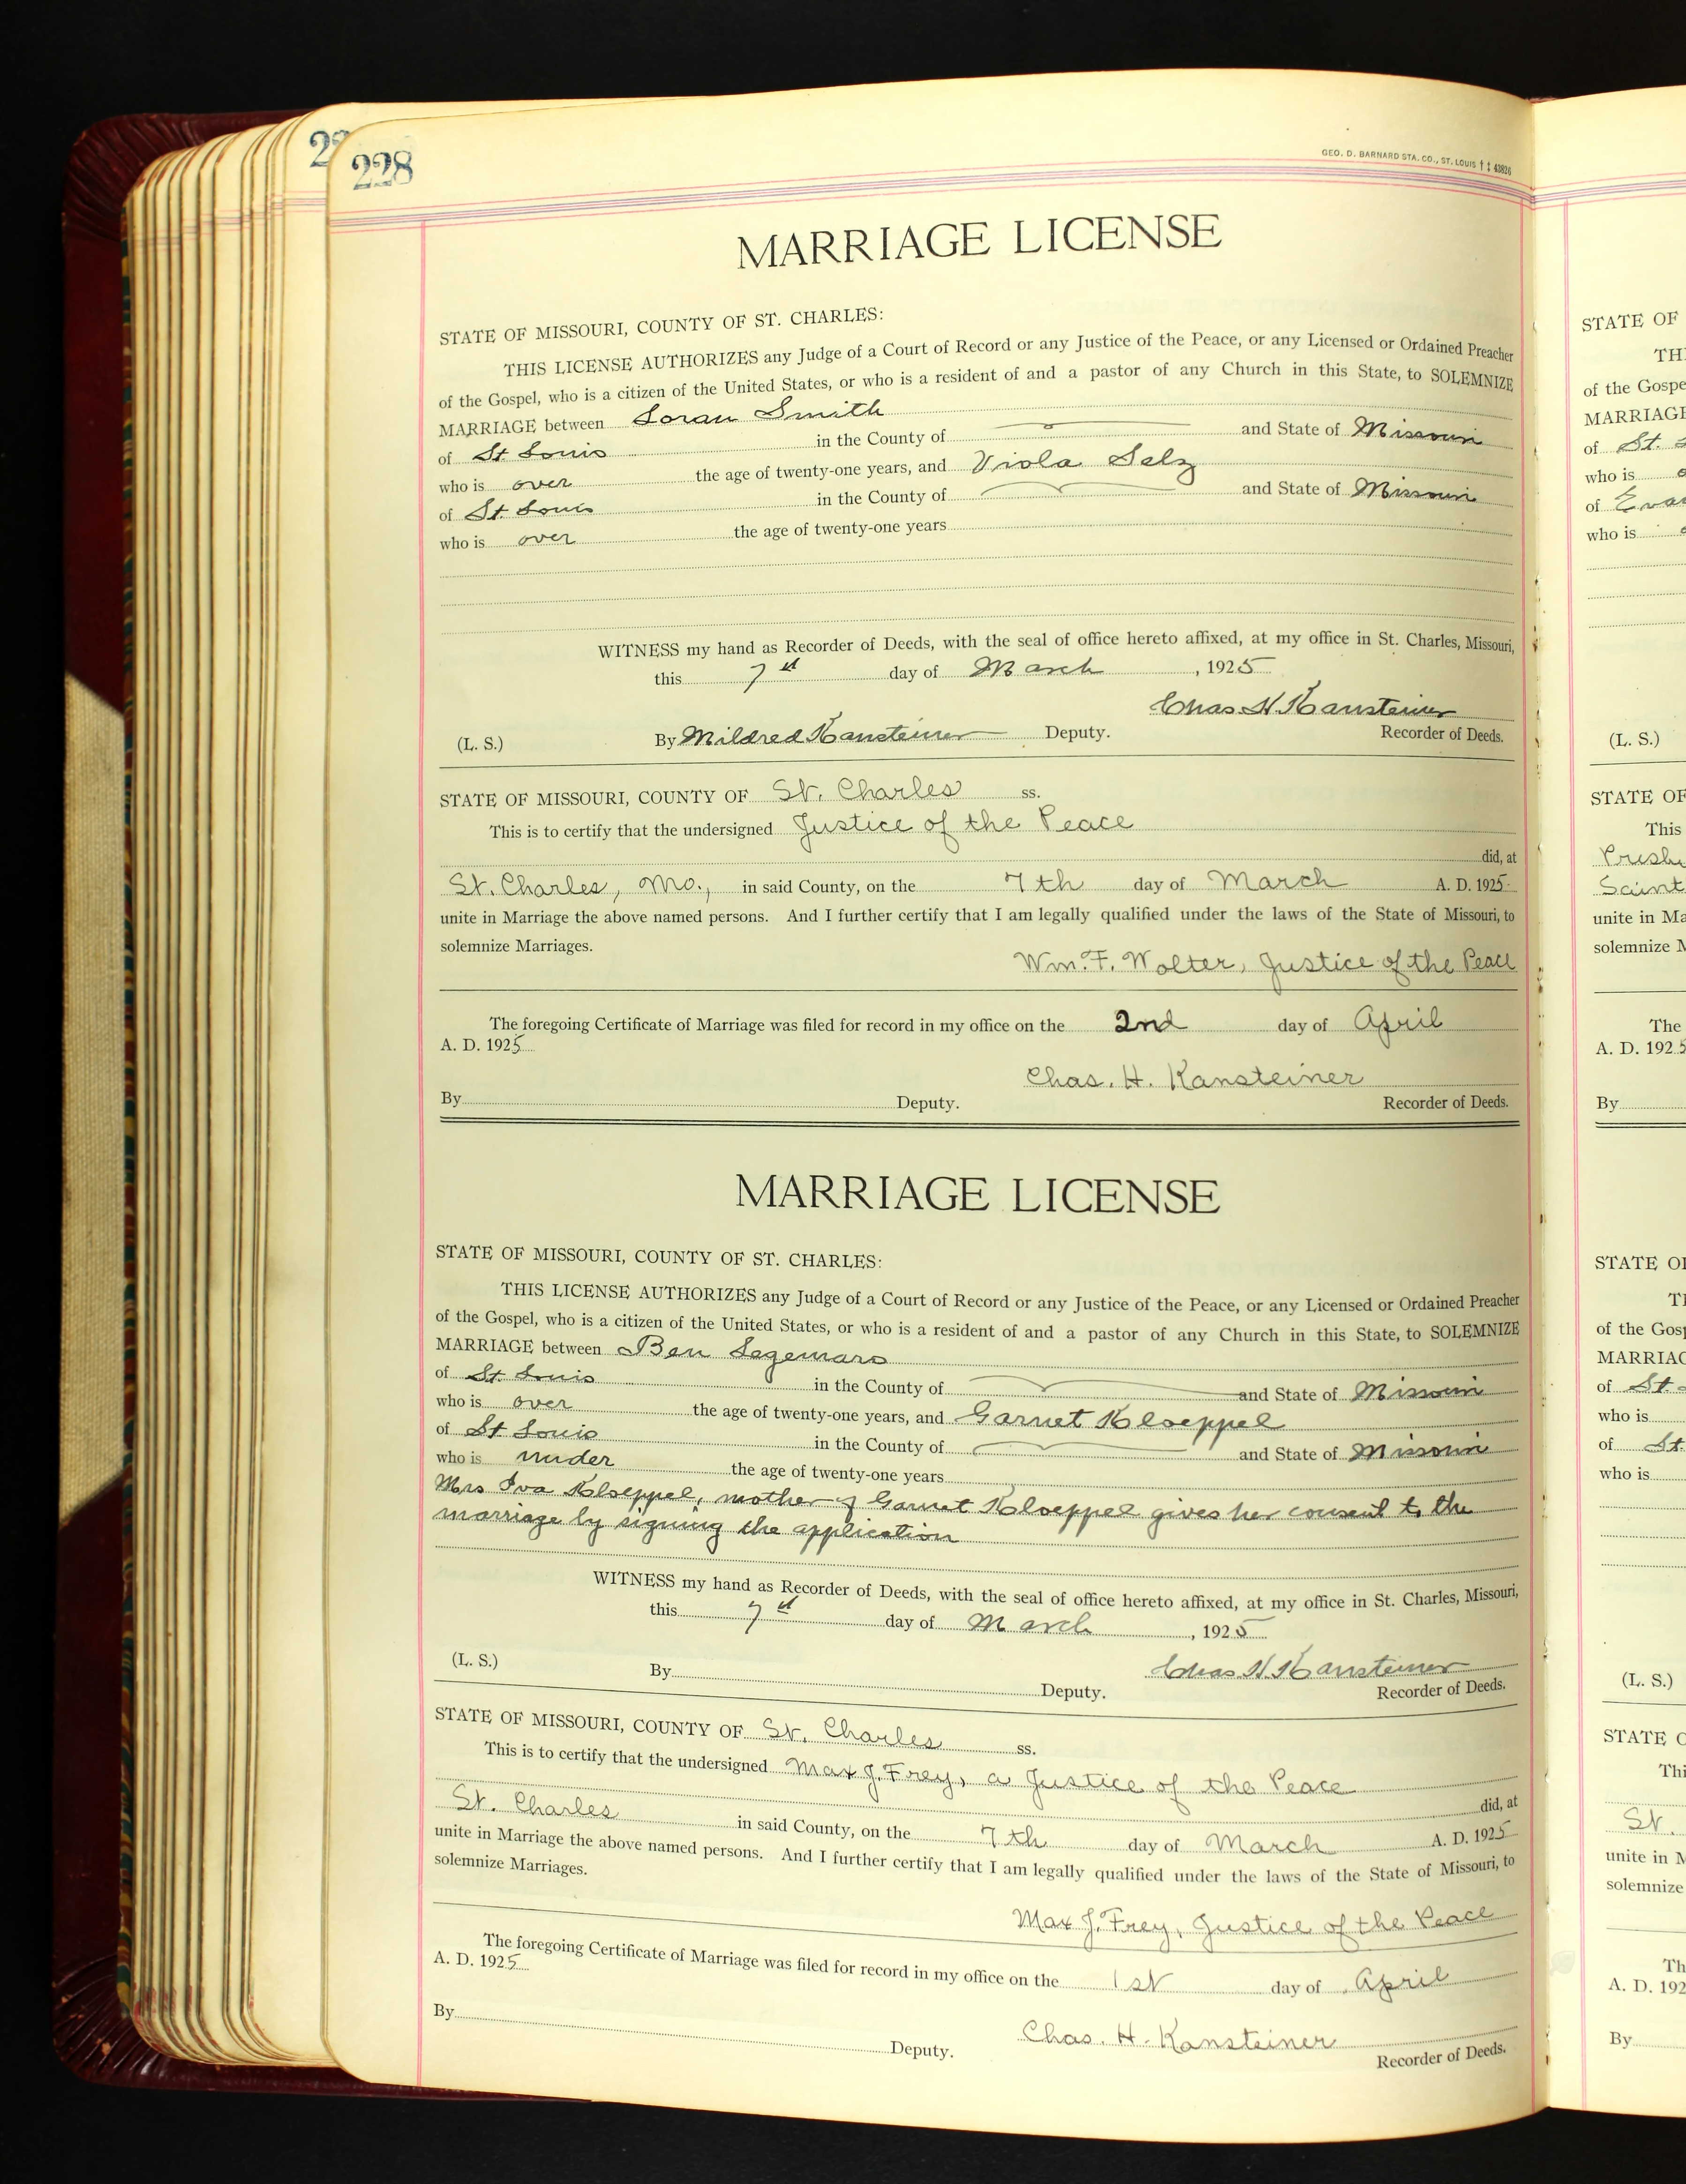 228
GEO. D. BARNARD STA. CO., ST. LOUIS † ‡ 43826
MARRIAGE LICENSE
STATE OF MISSOURI, COUNTY OF ST. CHARLES:
THIS LICENSE AUTHORIZES any Judge of a Court of Record or any Justice of the Peace, or any Licensed or Ordained Preacher
of the Gospel, who is a citizen of the United States, or who is a resident of and a pastor of any Church in this State, to SOLEMNIZE
MARRIAGE between Loran Smith
of St Louis in the County of and State of Missouri
who is over the age of twenty-one years, and Viola Selz
of St Louis in the County of and State of Missouri
who is over the age of twenty-one years
WITNESS my hand as Recorder of Deeds, with the seal of office hereto affixed, at my office in St. Charles, Missouri,
this 7th day of March, 1925
Chas H. Kansteiner
(L. S.) By Mildred Kansteiner Deputy. Recorder of Deeds.
STATE OF MISSOURI, COUNTY OF St. Charles ss.
This is to certify that the undersigned Justice of the Peace
did, at
St. Charles, Mo., in said County, on the 7th day of March A. D. 1925
unite in Marriage the above named persons. And I further certify that I am legally qualified under the laws of the State of Missouri, to
solemnize Marriages.
Wm. F. Wolter, Justice of the Peace
The foregoing Certificate of Marriage was filed for record in my office on the 2nd day of April
A. D. 1925
Chas. H. Kansteiner
By Deputy. Recorder of Deeds.
MARRIAGE LICENSE
STATE OF MISSOURI, COUNTY OF ST. CHARLES:
THIS LICENSE AUTHORIZES any Judge of a Court of Record or any Justice of the Peace, or any Licensed or Ordained Preacher
of the Gospel, who is a citizen of the United States, or who is a resident of and a pastor of any Church in this State, to SOLEMNIZE
MARRIAGE between Ben Segemars
of St Louis in the County of and State of Missouri
who is over the age of twenty-one years, and Garnet Kloeppel
of St Louis in the County of and State of Missouri
who is under the age of twenty-one years
Mrs Iva Kloeppel, mother of Garnet Kloeppel gives her consent to the
marriage by signing the application
WITNESS my hand as Recorder of Deeds, with the seal of office hereto affixed, at my office in St. Charles, Missouri,
this 7th day of March, 1925
(L. S.) By Deputy. Chas H. Kansteiner
Recorder of Deeds.
STATE OF MISSOURI, COUNTY OF St. Charles ss.
This is to certify that the undersigned Max J. Frey, a Justice of the Peace
did, at
St. Charles in said County, on the 7th day of March A. D. 1925
unite in Marriage the above named persons. And I further certify that I am legally qualified under the laws of the State of Missouri, to
solemnize Marriages.
Max J. Frey, Justice of the Peace
The foregoing Certificate of Marriage was filed for record in my office on the 1st day of April
A. D. 1925
Chas. H. Kansteiner
By Deputy. Recorder of Deeds.
STATE OF
of the Gospe
MARRIAGE
of St.
who is
of Evan
who is
(L. S.)
STATE OF
This
Presby
Saint
unite in Ma
solemnize M
The
A. D. 1925
By
STATE OF
of the Gosp
MARRIAG
of St
who is
of St
who is
(L. S.)
STATE O
Thi
St.
unite in M
solemnize
Th
A. D. 192
By